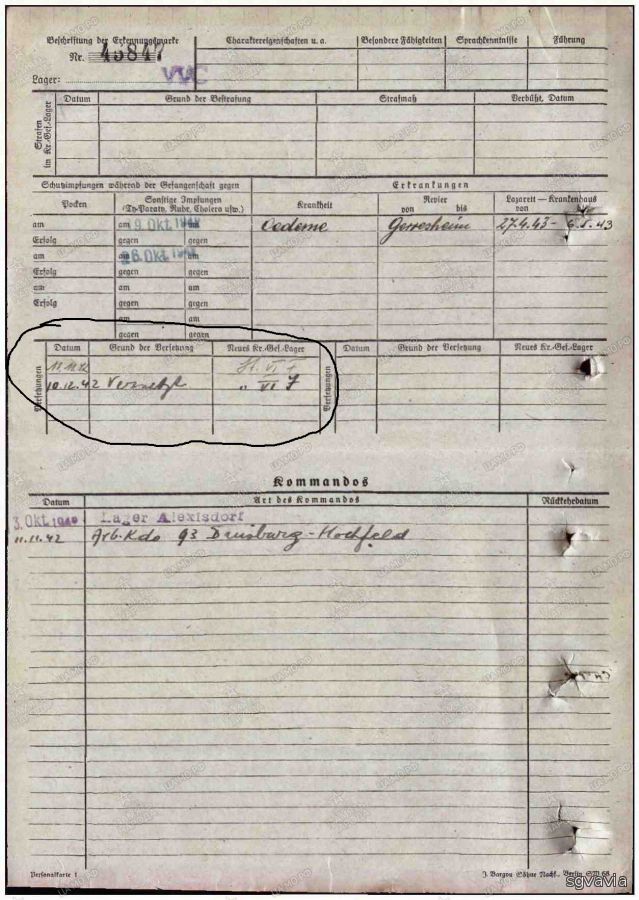 Beschriftung der Erkennungsmarke
Nr. 45847
VI/C
Lager:
Charaktereigenschaften u. a.
Besondere Fähigkeiten
Sprachkenntnisse
Führung
Strafen im Kr.-Gef.-Lager
Datum
Grund der Bestrafung
Strafmaß
Verbüßt, Datum
Schutzimpfungen während der Gefangenschaft gegen
Erkrankungen
Pocken
Sonstige Impfungen
(Ty-Paraty, Ruhr, Cholera usw.)
Krankheit
Revier
von bis
Lazarett — Krankenhaus
von
am am 9. Okt. am
Oedeme Gerresheim 27.4.43 - 6.5.43
Erfolg gegen gegen
am am 26. Okt. am
Erfolg gegen gegen
am am am
Erfolg gegen gegen
am am
gegen gegen
Versetzungen
Datum Grund der Versetzung Neues Kr.-Gef.-Lager
11.11.42 St. VI F
10.12.42 Versetzt " VI J
Versetzungen
Datum Grund der Versetzung Neues Kr.-Gef.-Lager
Kommandos
Datum Art des Kommandos Rückkehrdatum
3. Okt. Lager Alexisdorf
11.11.42 Arb.Kdo 93 Duisburg-Hochfeld
Personalkarte 1
J. Bargou Söhne Nachf., Berlin SW 68
ЦАМО РФ
sgvavia